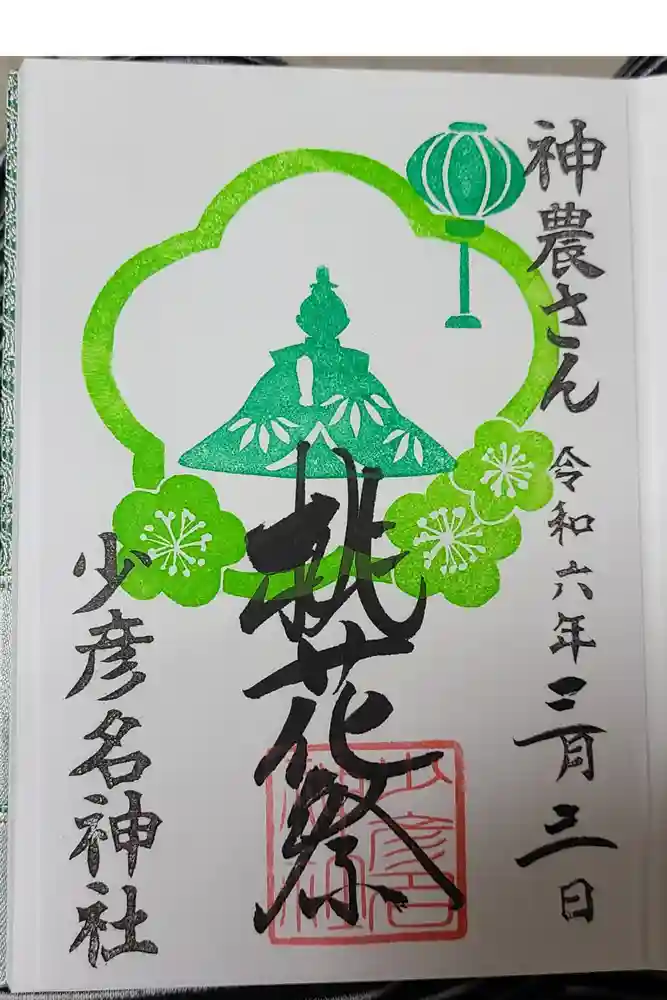 神農さん 令和六年三月三日
桃花祭
少彦名神社
少彦名
神社